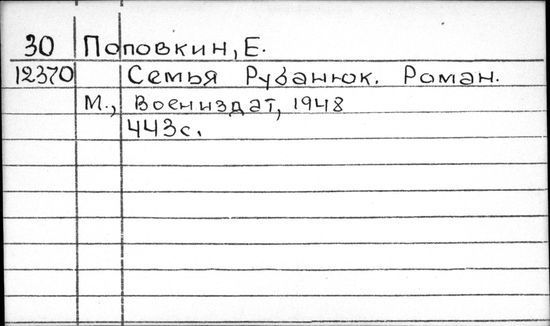 30 Поповкин, Е.
12370 Семья Рубанюк. Роман.
М., Воениздат, 1948
443с.